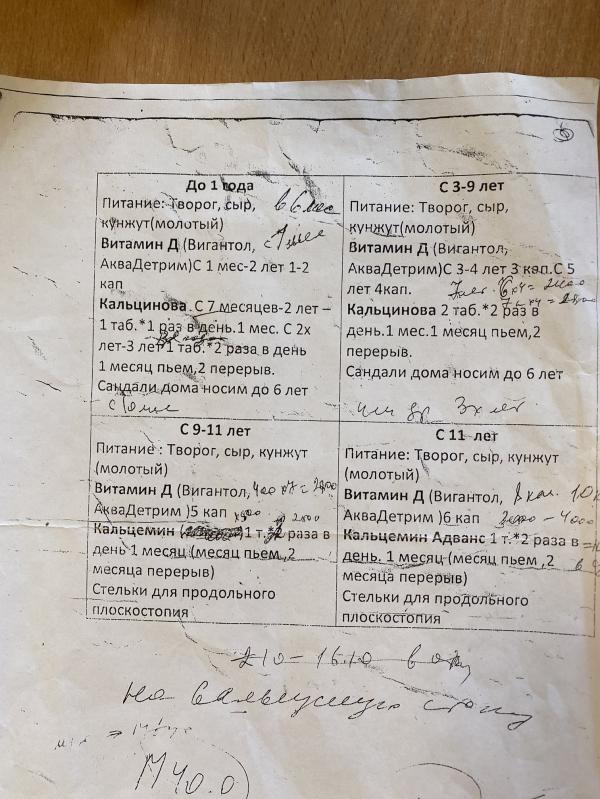 До 1 года
Питание: Творог, сыр, в 6 мес
кунжут(молотый)
Витамин Д (Вигантол,
АкваДетрим)С 1 мес-2 лет 1-2
кап
Кальцинова С 7 месяцев-2 лет –
1 таб.*1 раз в день.1 мес. С 2х
лет-3 лет 1 таб.*2 раза в день
1 месяц пьем,2 перерыв.
Сандали дома носим до 6 лет
С 3-9 лет
Питание: Творог, сыр,
кунжут(молотый)
Витамин Д (Вигантол,
АкваДетрим)С 3-4 лет 3 кап.С 5
лет 4кап.
Кальцинова 2 таб.*2 раз в
день.1 мес.1 месяц пьем,2
перерыв.
Сандали дома носим до 6 лет
3х лет
С 9-11 лет
Питание : Творог, сыр, кунжут
(молотый)
Витамин Д (Вигантол,
АкваДетрим )5 кап
Кальцемин 1 т.*2 раза в
день 1 месяц (месяц пьем ,2
месяца перерыв)
Стельки для продольного
плоскостопия
С 11 лет
Питание: Творог, сыр, кунжут
(молотый)
Витамин Д (Вигантол,
АкваДетрим )6 кап
Кальцемин Адванс 1 т.*2 раза в
день. 1 месяц (месяц пьем ,2
месяца перерыв)
Стельки для продольного
плоскостопия
на вальгусную стопу
М 40.0